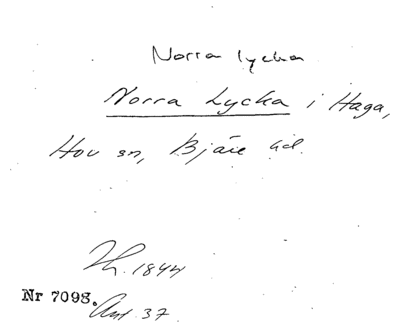 Norra lycka
Norra Lycka i Haga,
Hov sn, Bjäre hd.
Th. 1844
Nr 7093.
Ant. 37